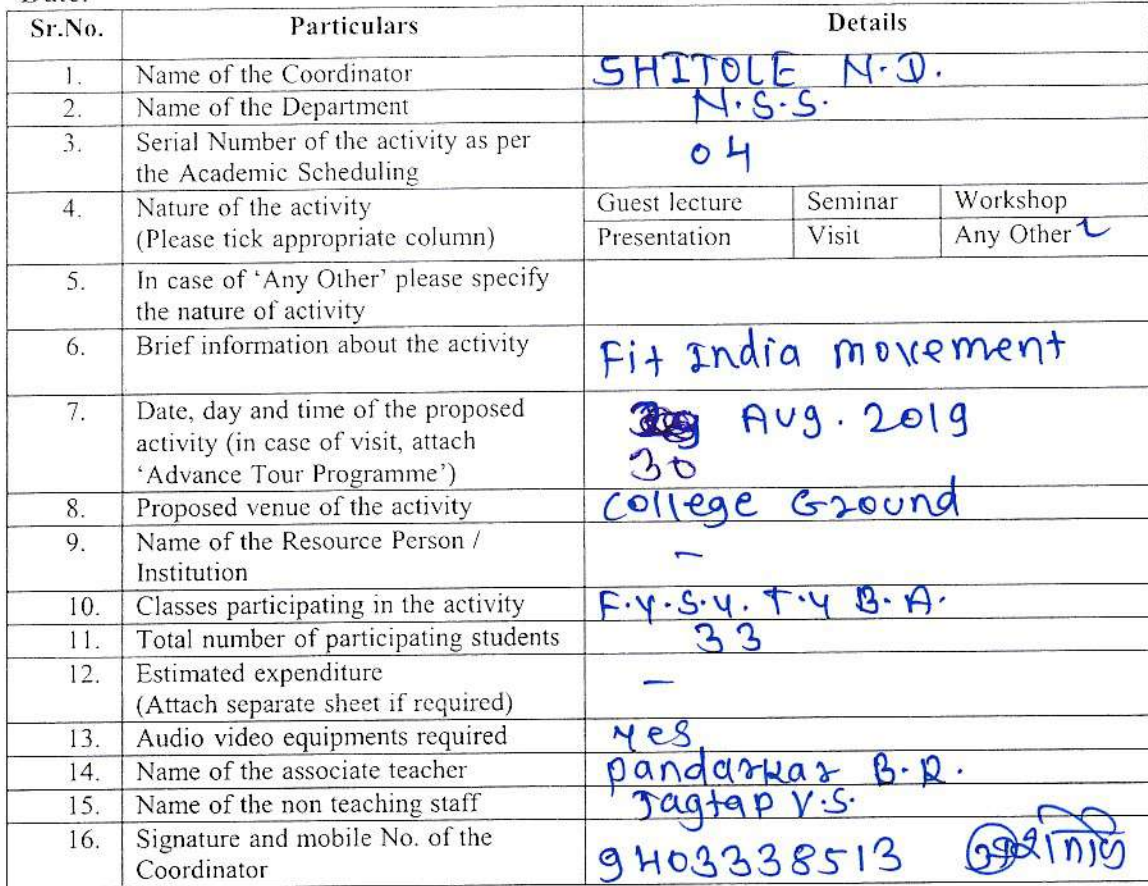 Sr.No. Particulars Details
1. Name of the Coordinator SHITOLE N.D.
2. Name of the Department N.S.S.
3. Serial Number of the activity as per
the Academic Scheduling 04
4. Nature of the activity Guest lecture Seminar Workshop
(Please tick appropriate column) Presentation Visit Any Other
5. In case of ‘Any Other’ please specify
the nature of activity
6. Brief information about the activity Fit India movement
7. Date, day and time of the proposed Aug. 2019
activity (in case of visit, attach
‘Advance Tour Programme’) 30
8. Proposed venue of the activity College Ground
9. Name of the Resource Person / -
Institution
10. Classes participating in the activity F.Y. S.Y. T.Y B.A.
11. Total number of participating students 33
12. Estimated expenditure -
(Attach separate sheet if required)
13. Audio video equipments required Yes
14. Name of the associate teacher pandarkar B.R.
15. Name of the non teaching staff Jagtap V.S.
16. Signature and mobile No. of the
Coordinator 9403338513